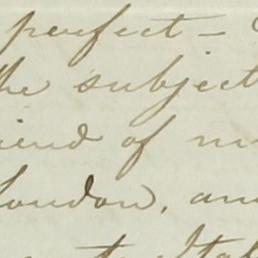 perfect —
the subject
friend of m
London, an